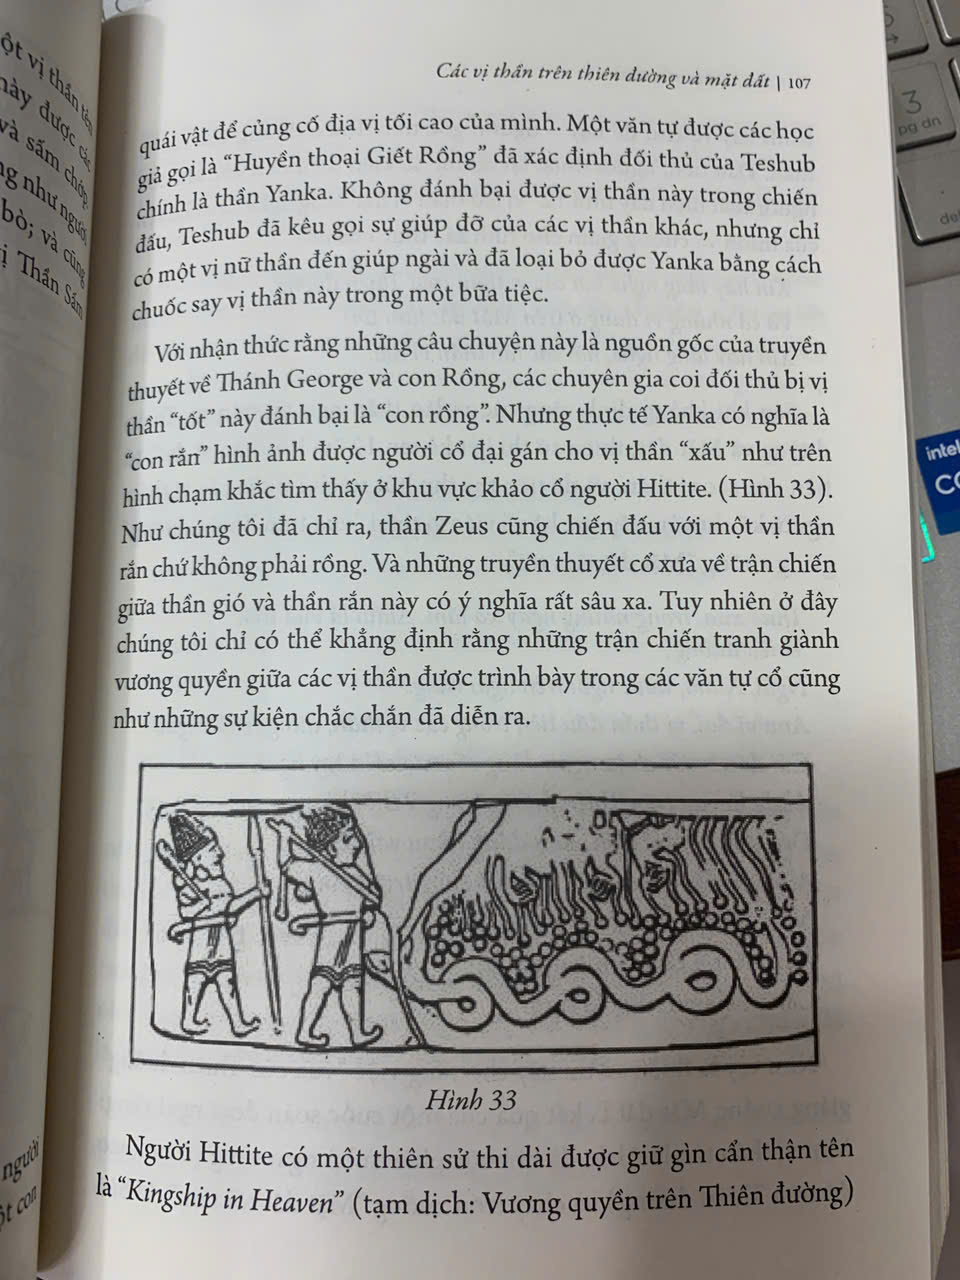 ột vị thần tên
này được các
và sấm chớp.
ng như người
bò; và cũng
ị Thần Sấm
người
ột con
Các vị thần trên thiên đường và mặt đất | 107
quái vật để củng cố địa vị tối cao của mình. Một văn tự được các học
giả gọi là “Huyền thoại Giết Rồng” đã xác định đối thủ của Teshub
chính là thần Yanka. Không đánh bại được vị thần này trong chiến
đấu, Teshub đã kêu gọi sự giúp đỡ của các vị thần khác, nhưng chỉ
có một vị nữ thần đến giúp ngài và đã loại bỏ được Yanka bằng cách
chuốc say vị thần này trong một bữa tiệc.
Với nhận thức rằng những câu chuyện này là nguồn gốc của truyền
thuyết về Thánh George và con Rồng, các chuyên gia coi đối thủ bị vị
thần “tốt” này đánh bại là “con rồng”. Nhưng thực tế Yanka có nghĩa là
“con rắn” hình ảnh được người cổ đại gán cho vị thần “xấu” như trên
hình chạm khắc tìm thấy ở khu vực khảo cổ người Hittite. (Hình 33).
Như chúng tôi đã chỉ ra, thần Zeus cũng chiến đấu với một vị thần
rắn chứ không phải rồng. Và những truyền thuyết cổ xưa về trận chiến
giữa thần gió và thần rắn này có ý nghĩa rất sâu xa. Tuy nhiên ở đây
chúng tôi chỉ có thể khẳng định rằng những trận chiến tranh giành
vương quyền giữa các vị thần được trình bày trong các văn tự cổ cũng
như những sự kiện chắc chắn đã diễn ra.
Hình 33
Người Hittite có một thiên sử thi dài được giữ gìn cẩn thận tên
là “Kingship in Heaven” (tạm dịch: Vương quyền trên Thiên đường)
3
pg dn
del
intel
CO